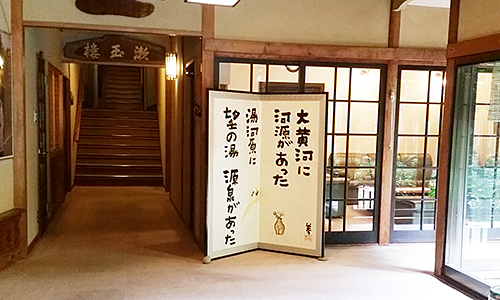 漱玉樓
大黄河に
河源があった
湯河原に
望の湯 源泉があった